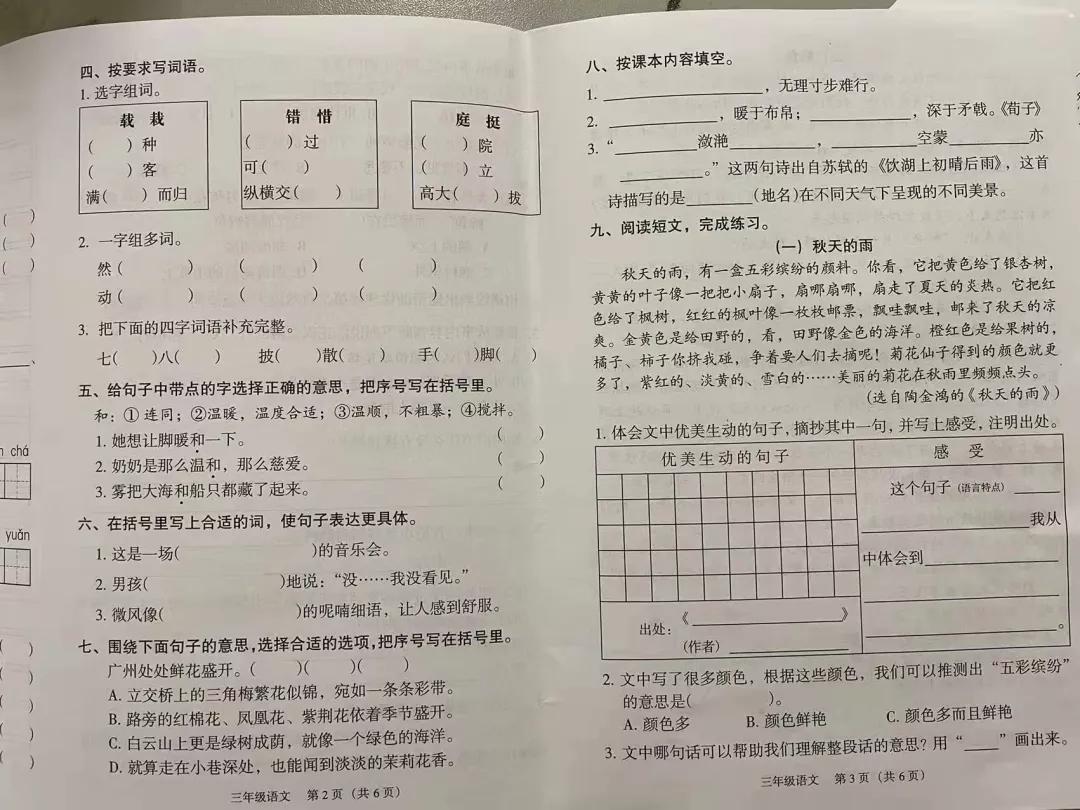 四、按要求写词语。
1. 选字组词。
载 栽
( )种
( )客
满( )而归
错 惜
( )过
可( )
纵横交( )
庭 挺
( )院
( )立
高大( )拔
2. 一字组多词。
然( ) ( ) ( )
动( ) ( ) ( )
3. 把下面的四字词语补充完整。
七( )八( ) 披( )散( ) 手( )脚( )
五、给句子中带点的字选择正确的意思，把序号写在括号里。
和：① 连同；②温暖，温度合适；③温顺，不粗暴；④搅拌。
1. 她想让脚暖和一下。 ( )
2. 奶奶是那么温和，那么慈爱。 ( )
3. 雾把大海和船只都藏了起来。 ( )
六、在括号里写上合适的词，使句子表达更具体。
1. 这是一场( )的音乐会。
2. 男孩( )地说：“没……我没看见。”
3. 微风像( )的呢喃细语，让人感到舒服。
七、围绕下面句子的意思，选择合适的选项，把序号写在括号里。
广州处处鲜花盛开。( )( )( )
A. 立交桥上的三角梅繁花似锦，宛如一条条彩带。
B. 路旁的红棉花、凤凰花、紫荆花依着季节盛开。
C. 白云山上更是绿树成荫，就像一个绿色的海洋。
D. 就算走在小巷深处，也能闻到淡淡的茉莉花香。
三年级语文 第2页（共6页）
八、按课本内容填空。
1. ____________________，无理寸步难行。
2. ______________，暖于布帛；____________，深于矛戟。《荀子》
3. “__________潋滟__________，__________空蒙________亦
__________。”这两句诗出自苏轼的《饮湖上初晴后雨》，这首
诗描写的是________(地名)在不同天气下呈现的不同美景。
九、阅读短文，完成练习。
(一) 秋天的雨
秋天的雨，有一盒五彩缤纷的颜料。你看，它把黄色给了银杏树，
黄黄的叶子像一把把小扇子，扇哪扇哪，扇走了夏天的炎热。它把红
色给了枫树，红红的枫叶像一枚枚邮票，飘哇飘哇，邮来了秋天的凉
爽。金黄色是给田野的，看，田野像金色的海洋。橙红色是给果树的，
橘子、柿子你挤我碰，争着要人们去摘呢！菊花仙子得到的颜色就更
多了，紫红的、淡黄的、雪白的……美丽的菊花在秋雨里频频点头。
(选自陶金鸿的《秋天的雨》)
1. 体会文中优美生动的句子，摘抄其中一句，并写上感受，注明出处。
优美生动的句子
感 受
这个句子(语言特点)______
____________________我从
中体会到________________
____________________
____________________。
出处：《____________________》
(作者)____________________
2. 文中写了很多颜色，根据这些颜色，我们可以推测出“五彩缤纷”
的意思是( )。
A. 颜色多 B. 颜色鲜艳 C. 颜色多而且鲜艳
3. 文中哪句话可以帮助我们理解整段话的意思？用“____”画出来。
三年级语文 第3页（共6页）
chá
yuǎn